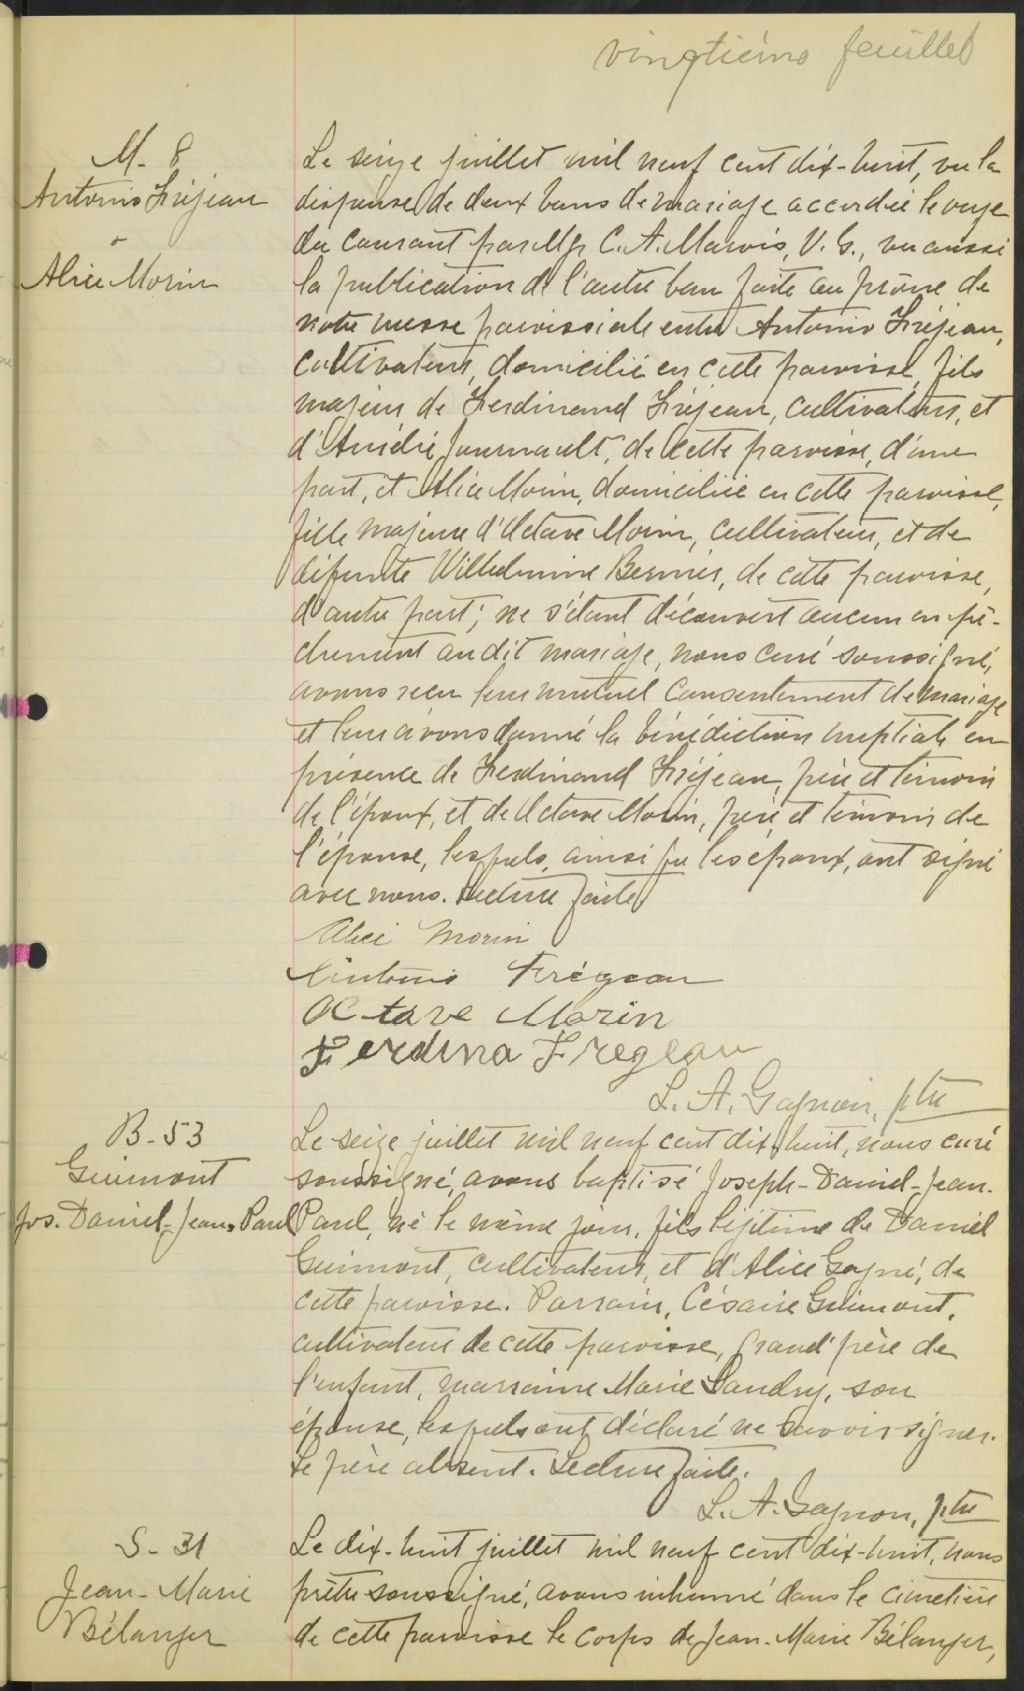 vingtième feuillet
M. 8
Antonio Fréjeau
&
Alice Morin
Le seize juillet mil neuf cent dix-huit, vu la
dispense de deux bans de mariage accordée le onze
du courant par Mgr C. A. Marois, V. G., vu aussi
la publication de l'autre ban faite au prône de
notre messe paroissiale entre Antonio Fréjeau,
cultivateur, domicilié en cette paroisse, fils
majeur de Ferdinand Fréjeau, cultivateur, et
d'Amélie Journault, de cette paroisse, d'une
part, et Alice Morin, domiciliée en cette paroisse,
fille majeure d'Octave Morin, cultivateur, et de
défunte Wilhelmine Bernier, de cette paroisse,
d'autre part; ne s'étant découvert aucun empê-
chement au dit mariage, nous curé soussigné,
avons reçu leur mutuel consentement de mariage
et leur avons donné la bénédiction nuptiale en
présence de Ferdinand Fréjeau, père et témoin
de l'époux, et de Octave Morin, père et témoin de
l'épouse, lesquels, ainsi que les époux, ont signé
avec nous. Lecture faite
Alice Morin
Antonio Frégeau
Octave Morin
Ferdina Fregeau
L. A. Gagnon, ptre
B-53
Guimont
Jos. Daniel-Jean-Paul
Le seize juillet mil neuf cent dix-huit, nous curé
soussigné, avons baptisé Joseph-Daniel-Jean-
Paul, né le même jour, fils légitime de Daniel
Guimont, cultivateur, et d'Alice Gagné, de
cette paroisse. Parrain, Césaire Guimont,
cultivateur de cette paroisse, grand'père de
l'enfant, marraine Marie Landry, son
épouse, lesquels ont déclaré ne savoir signer.
Le père absent. Lecture faite.
L. A. Gagnon, ptre
S-31
Jean-Marie
Bélanger
Le dix-huit juillet mil neuf cent dix-huit, nous
prêtre soussigné, avons inhumé dans le cimetière
de cette paroisse le corps de Jean-Marie Bélanger,